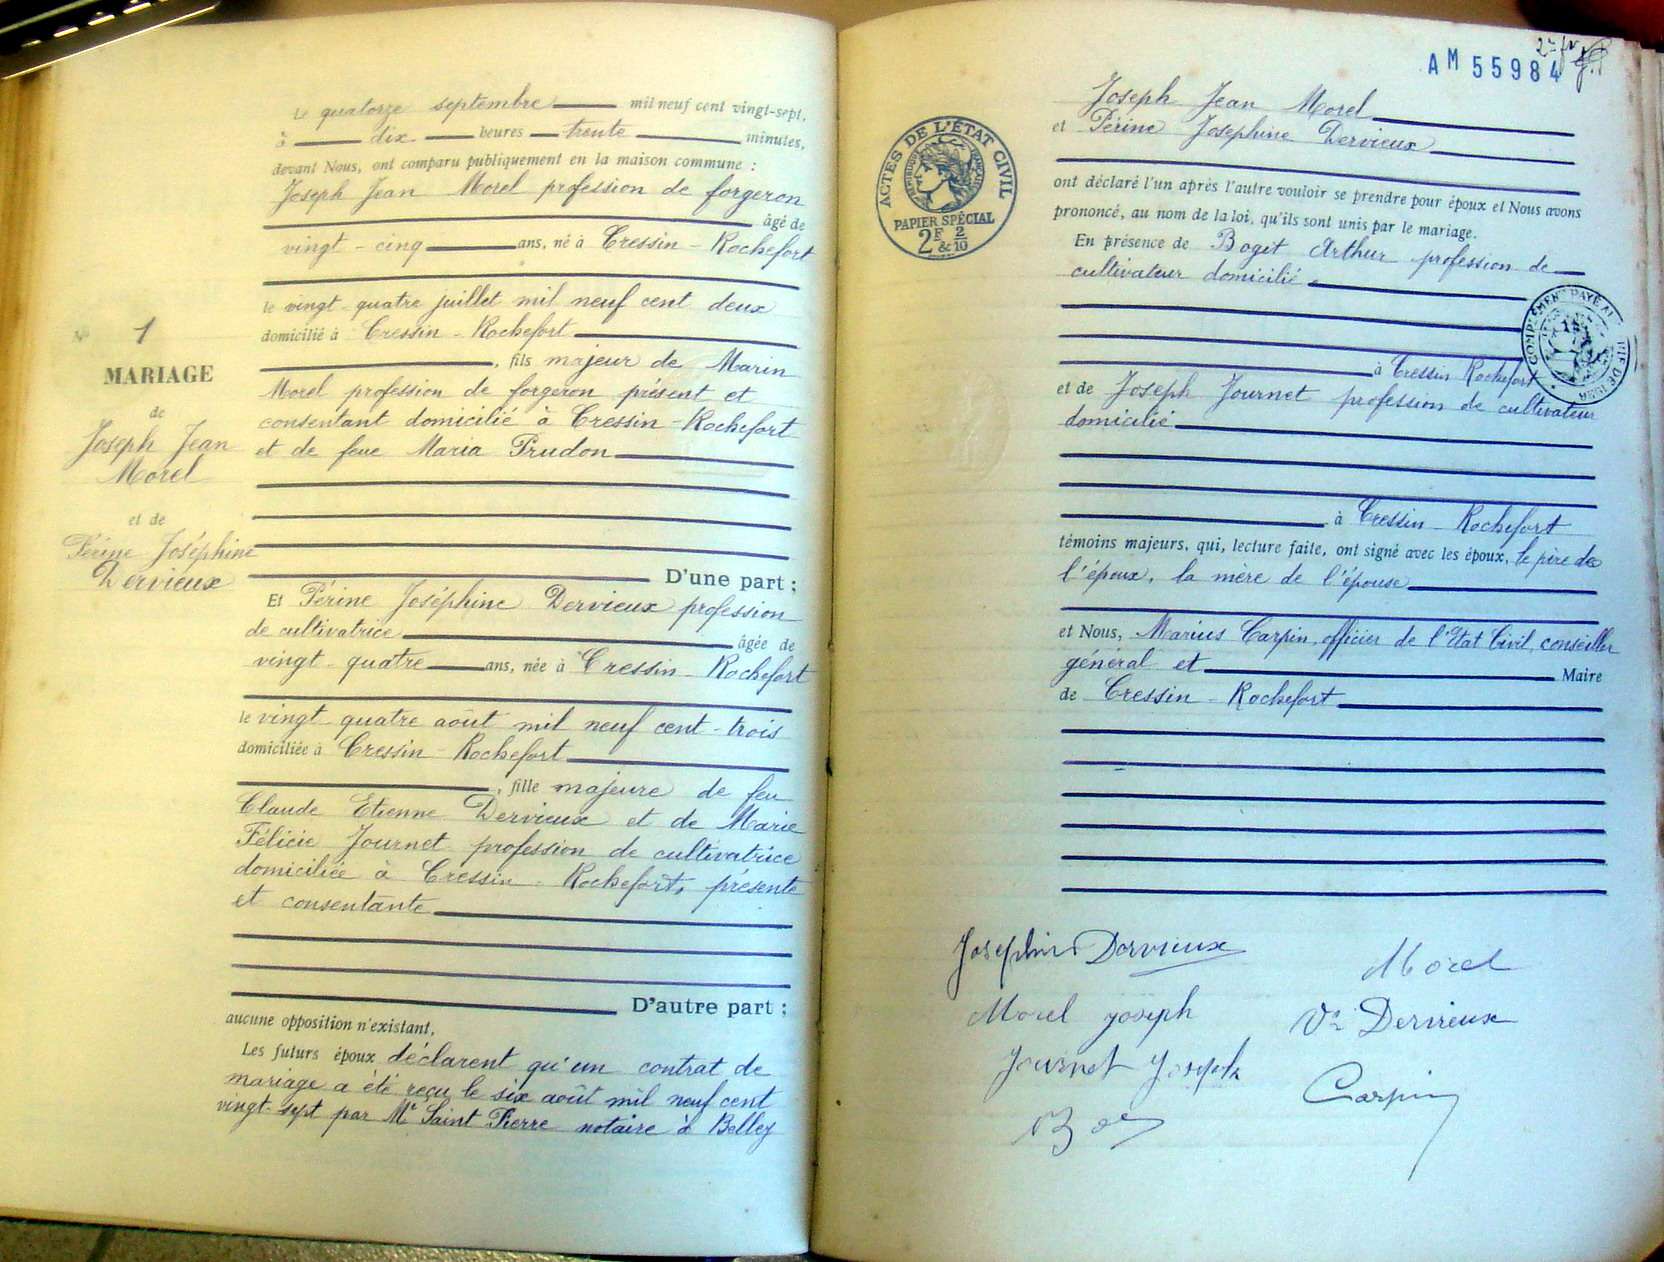 Le quatorze septembre mil neuf cent vingt-sept,
à dix heures trente minutes,
devant Nous, ont comparu publiquement en la maison commune :
Joseph Jean Morel profession de forgeron
âgé de
vingt-cinq ans, né à Cressin-Rochefort
le vingt-quatre juillet mil neuf cent deux
domicilié à Cressin-Rochefort
, fils majeur de Marin
Morel profession de forgeron présent et
consentant domicilié à Cressin-Rochefort
et de feue Maria Prudon
D'une part ;
Et Périne Joséphine Dervieux profession
de cultivatrice âgée de
vingt-quatre ans, née à Cressin-Rochefort
le vingt-quatre août mil neuf cent-trois
domiciliée à Cressin-Rochefort
, fille majeure de feu
Claude Etienne Dervieux et de Marie
Félicie Journet profession de cultivatrice
domiciliée à Cressin-Rochefort, présente
et consentante
D'autre part ;
aucune opposition n'existant,
Les futurs époux déclarent qu'un contrat de
mariage a été reçu le six août mil neuf cent
vingt-sept par Me Saint Pierre notaire à Belley
N° 1
MARIAGE
de
Joseph Jean
Morel
et de
Périne Joséphine
Dervieux
AM 55984
Joseph Jean Morel
et Périne Josephine Dervieux
ont déclaré l'un après l'autre vouloir se prendre pour époux et Nous avons
prononcé, au nom de la loi, qu'ils sont unis par le mariage.
En présence de Boget Arthur profession de
cultivateur domicilié
à Cressin Rochefort
et de Joseph Journet profession de cultivateur
domicilié
à Cressin-Rochefort
témoins majeurs, qui, lecture faite, ont signé avec les époux, le père de
l'époux, la mère de l'épouse
et Nous, Marius Carpin, officier de l'Etat Civil, conseiller
général et Maire
de Cressin-Rochefort
ACTES DE L'ÉTAT CIVIL
RÉPUBLIQUE FRANÇAISE
PAPIER SPÉCIAL
2F & 2/10
COMPLÉMENT PAYÉ AU
Joséphine Dervieux
Morel
Morel Joseph
Ve Dervieux
Journet Joseph
Carpin